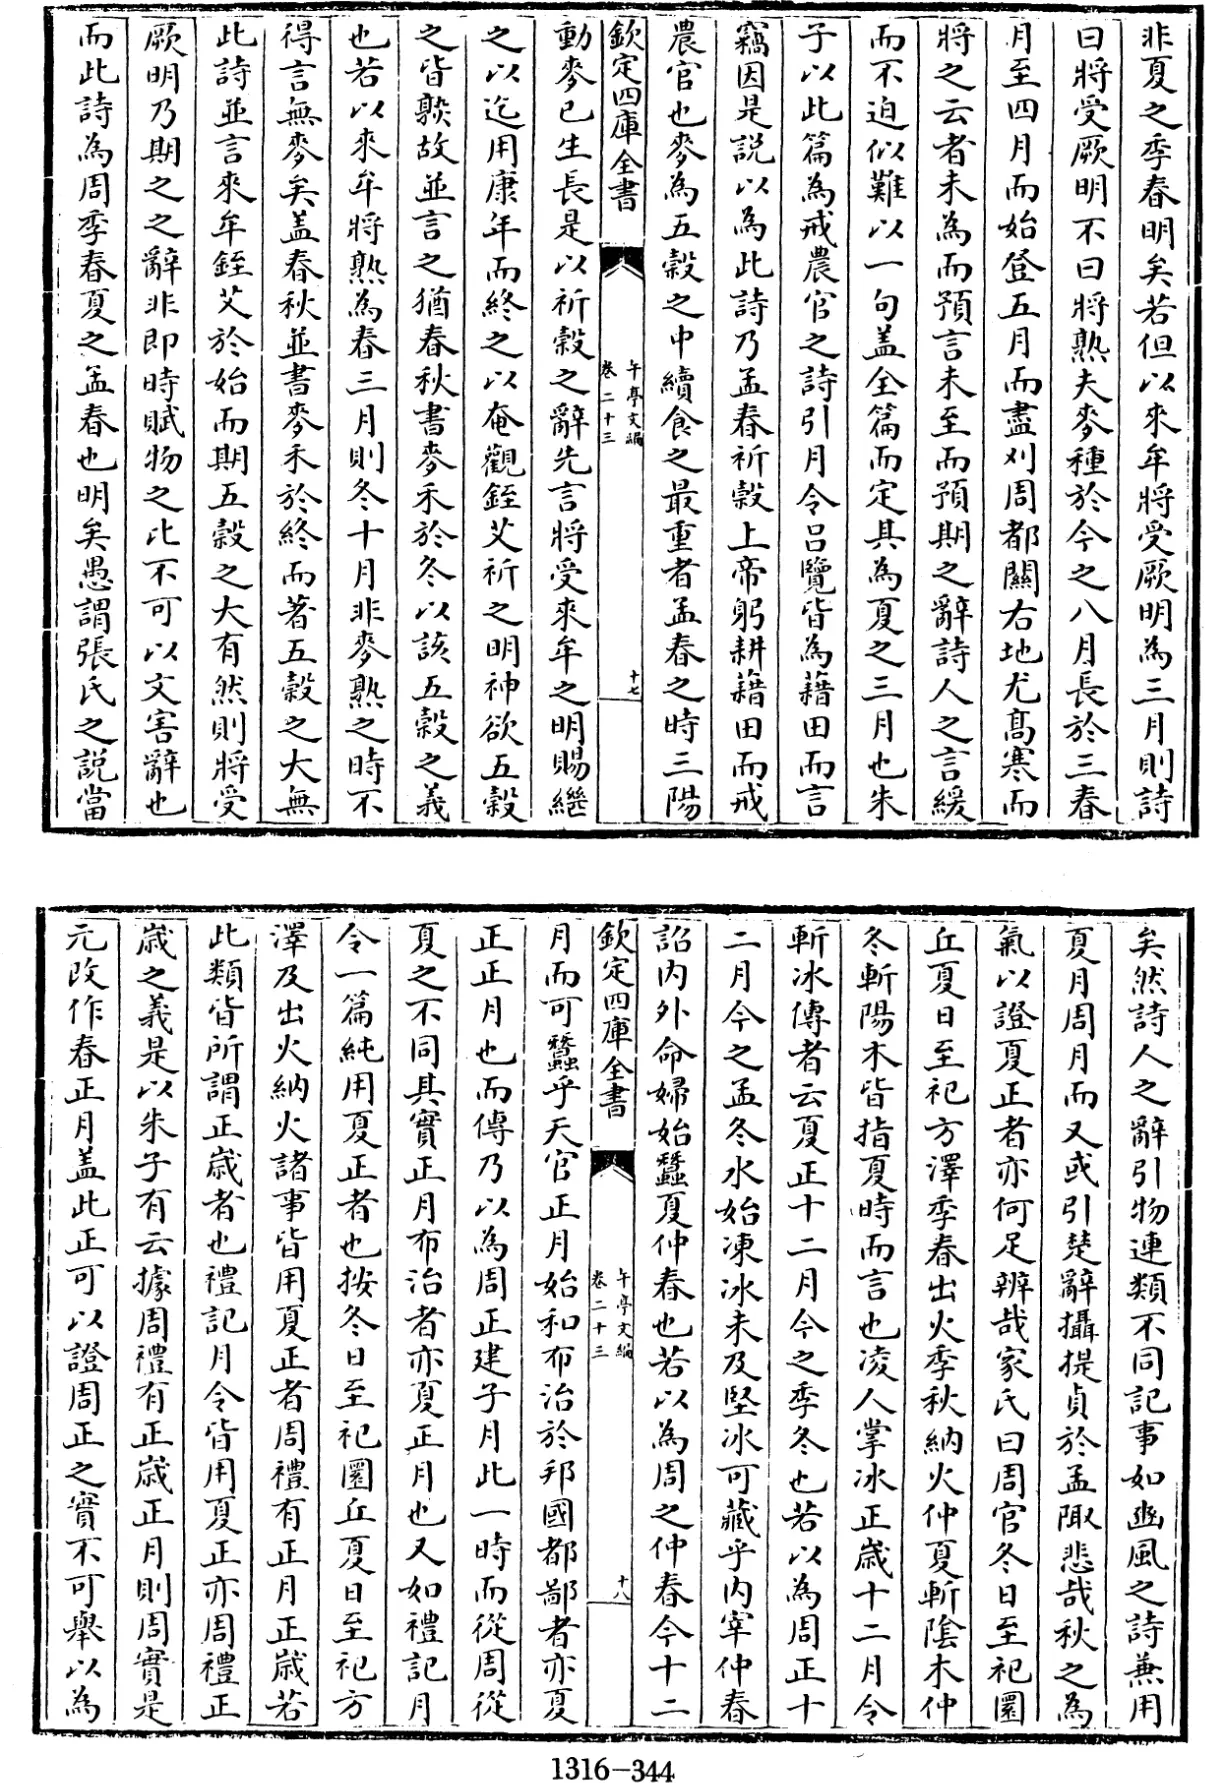 非夏之季春明矣若但以來牟將受厥明為三月則詩
曰將受厥明不曰將熟夫麥種於今之八月長於三春
月至四月而始登五月而盡刈周都關右地尤髙寒而
將之云者未為而預言未至而預期之辭詩人之言緩
而不迫似難以一句盖全篇而定其為夏之三月也朱
子以此篇為戒農官之詩引月令吕覽皆為藉田而言
竊因是說以為此詩乃孟春祈穀上帝躬耕藉田而戒
農官也麥為五穀之中續食之最重者孟春之時三陽
欽定四庫全書
午亭文編
卷二十三
十七
動麥已生長是以祈穀之辭先言將受來牟之明賜繼
之以迄用康年而終之以奄觀銍艾祈之明神欲五穀
之皆熟故並言之猶春秋書麥禾於冬以該五穀之義
也若以來牟將熟為春三月則冬十月非麥熟之時不
得言無麥矣盖春秋並書麥禾於終而著五穀之大無
此詩並言來牟銍艾於始而期五穀之大有然則將受
厥明乃期之之辭非即時賦物之比不可以文害辭也
而此詩為周季春夏之孟春也明矣愚謂張氏之説當
矣然詩人之辭引物連類不同記事如豳風之詩兼用
夏月周月而又或引楚辭攝提貞於孟陬悲哉秋之為
氣以證夏正者亦何足辨哉家氏曰周官冬日至祀圜
丘夏日至祀方澤季春出火季秋納火仲夏斬隂木仲
冬斬陽木皆指夏時而言也凌人掌冰正歲十二月令
斬冰傳者云夏正十二月今之季冬也若以為周正十
二月今之孟冬水始凍冰未及堅冰可藏乎内宰仲春
詔内外命婦始蠶夏仲春也若以為周之仲春今十二
欽定四庫全書
午亭文編
卷二十三
十八
月而可蠶乎天官正月始和布治於邦國都鄙者亦夏
正正月也而傳乃以為周正建子月此一時而從周從
夏之不同其實正月布治者亦夏正月也又如禮記月
令一篇純用夏正者也按冬日至祀圜丘夏日至祀方
澤及出火納火諸事皆用夏正者周禮有正月正歲若
此類皆所謂正歲者也禮記月令皆用夏正亦周禮正
歲之義是以朱子有云據周禮有正歲正月則周實是
元改作春正月盖此正可以證周正之實不可舉以為
1316-344